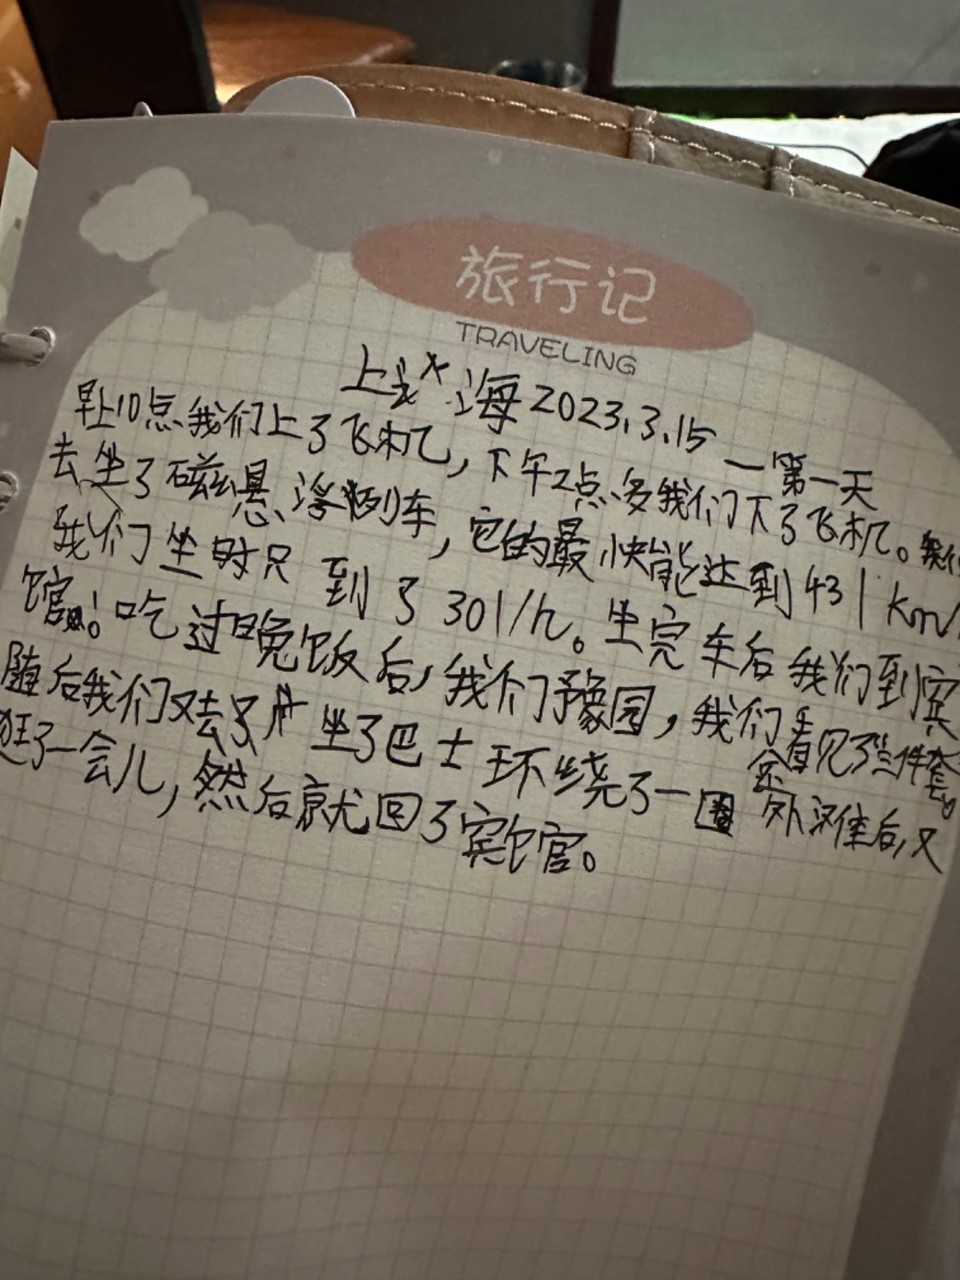 旅行记
TRAVELING
上海2023.3.15 —第一天
早上10点我们上了飞机,下午2点多我们下了飞机。我们
去坐了磁悬浮列车,它的最快能达到431km/
我们坐时只到了301/h。坐完车后我们到宾
馆!吃过晚饭后,我们豫园,我们看见了三件套。
随后我们又去了坐了巴士环绕了一圈外滩后,又
逛了一会儿,然后就回了宾馆。